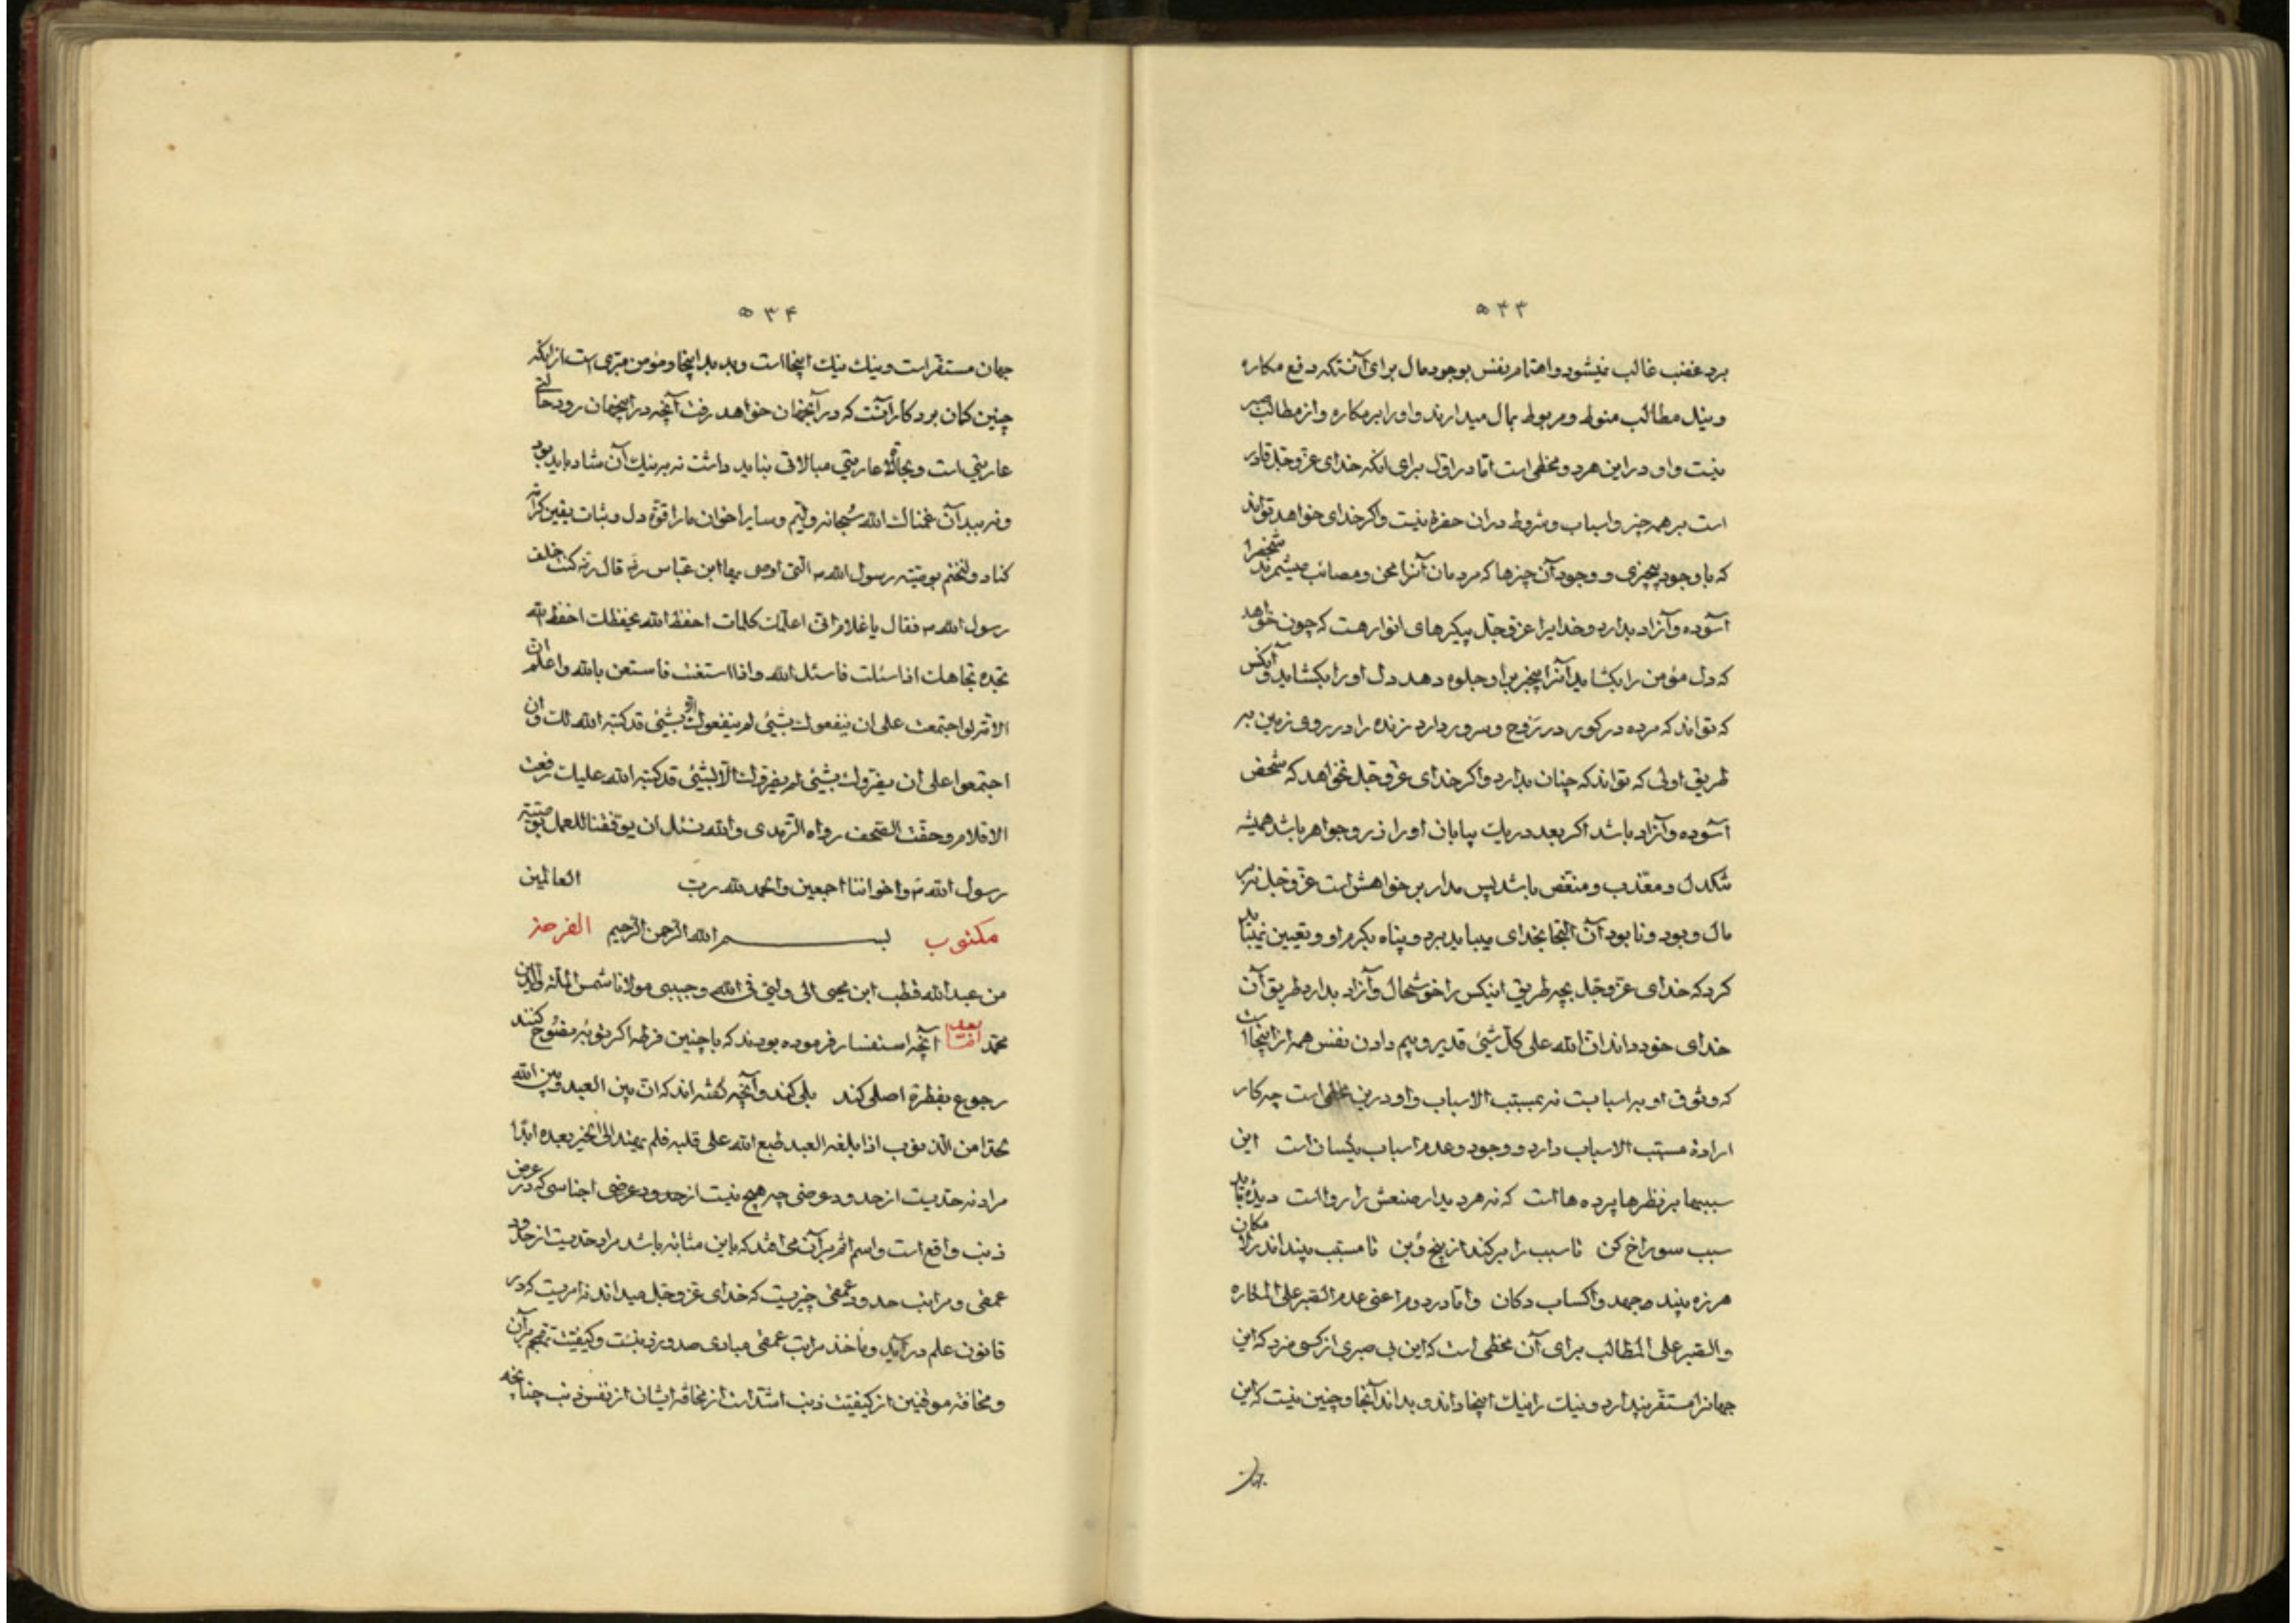 ۵۳۳
برد غضب غالب نیشود و اهتمام نفس بوجود مال برای آنستکه دفع مکاره
و نیل مطالب منوط و مربوط بمال میدارند و او را بر مکاره و از مطالب صبر
نیست و او در این هر دو مخطی است اما در اول برای آنکه خدای عز و جل قادر
است بر همه چیز و اسباب و شروط در ان حضرة نیست و اکر خدای خواهد تواند
که با وجود بیچیزی و وجود آن چیزها که مردمان آنرا محن و مصائب میشمرند شخصرا
آسوده و آزاد بدارد و خدایرا عز و جل پیکرهای انوار هست که چون خواهد
که دل مؤمن را بکشاید آنرا بیچیز براو جلوه دهد دل او را بکشاید و آنکس
که تواند که مرده در کور در رَوح و سرور دارد زنده را در روی زمین بر
طریق اولی که تواند که چنان بدارد و اکر خدای عز و جل نخواهد که شخص
آسوده و آزاد باشد اکر بعد دریک بیابان او را زر و جواهر باشد همیشه
تنکدل و معذب و منغص باشد پس مدار بر خواهش است عز و جل نه بر
مال و بود و نابود آن التجا بخدای میباید برد و پناه بکرم او و تعیین نمیباید
کرد که خدای عز و جل بچه طریق اینکس را خوشحال و آزاد بدارد طریق آن
خدای خود داند ان الله علی کل شیئ قدیر و بیم دادن نفس همه از اینجا است
که وثوق او بر اسبابست نه بمسبب الاسباب و او درین مخطی است چه کار
ارادهٔ مسبب الاسباب دارد و وجود و عدم اسباب یکسان است این
سببها بر نظرها پرده ها است که نه هر دیدار صنعش را رواست دیدهٔ باید
سبب سوراخ کن تا سبب را برکند از بیخ و بن تا مسبب بیند اندر لا مکان
هرزه بیند جهد و اکساب دکان و اما در دوم اعنی عدم الصبر علی المکاره
و الصبر علی المطالب برای آن مخطی است که این بی صبری از کسی سزد که این
جهانرا مستقر پندارد و نیک را نیک اینجا داند و بد اند آنجا و چنین نیست که این
جهان
۵۳۴
جهان مستقر است و نیک نیک اینجا است و بد بد اینجا و مؤمن مبری است از انکه
چنین کمان برد کار آنست که در آنجهان خواهد رفت آنچه در اینجهان رود حالتی
عاریتی است و بحالة عاریتی مبالاتی نباید داشت نه بر نیک آن شاد باید بود
و نه ببد آن غمناک الله سبحانه و لیم و سایر اخوان مارا قوة دل و ثبات یقین کرامة
کناد و لنختم بوصیّته رسول الله ص التی اوصی بها ابن عباس رض قال رض کنت خلف
رسول الله ص فقال یا غلام انی اعلمک کلمات احفظ الله یحفظک احفظ الله
تجده تجاهک اذا سئلت فاسئل الله و اذا استغنت فاستعن بالله و اعلم ان
الامة لو اجتمعت علی ان ینفعوک بشیئ لم ینفعوک الّا بشیئ قد کتبه الله لک و ان
اجتمعوا علی ان یضروک بشیئ لم یضروک الّا بشیئ قد کتبه الله علیک رفعت
الاقلام و حفّت الصحف رواه الترمدی و الله نسئل ان یوفقنا للعمل بوصیّته
رسول الله ص و اخواننا اجمعین و الحمد لله رب العالمین
مکتوب بسم الله الرحمن الرحیم الفرحه
من عبد الله قطب ابن یحیی الی ولیی فی الله و حبیبی مولانا شمس الملة و الدین
محمد اما بعد آنچه استفسار فرموده بودند که با چنین فرطه اکر توبه نصوح کنند
رجوع بفطرة اصلی کند بلی کند و آنچه کفته اند که ان بین العبد و بین الله
حدا من الذنوب اذا بلغه العبد طبع الله علی قلبه فلم یهتد الی الخیر بعده ابدا
مراد نه حدیست از حدود عرضی چه هیچ نیست از حدود عرضی اجناسی که در عرض
ذنب واقع است و اسم اثم بر آن می افتد که باین مثابه باشد مراد حدیست از حدود
عمقی و مراتب حدود عمقی چیزیست که خدای عز و جل میداند نه امریست که در
قانون علم در آید و ماخذ مراتب عمقی مبادی صدور ذنبست و کیفیّت تقحم بر آن
و مخافة موقنین از کیفیّت ذنب اشد است از مخافة ایشان از نفس ذنب چنانچه